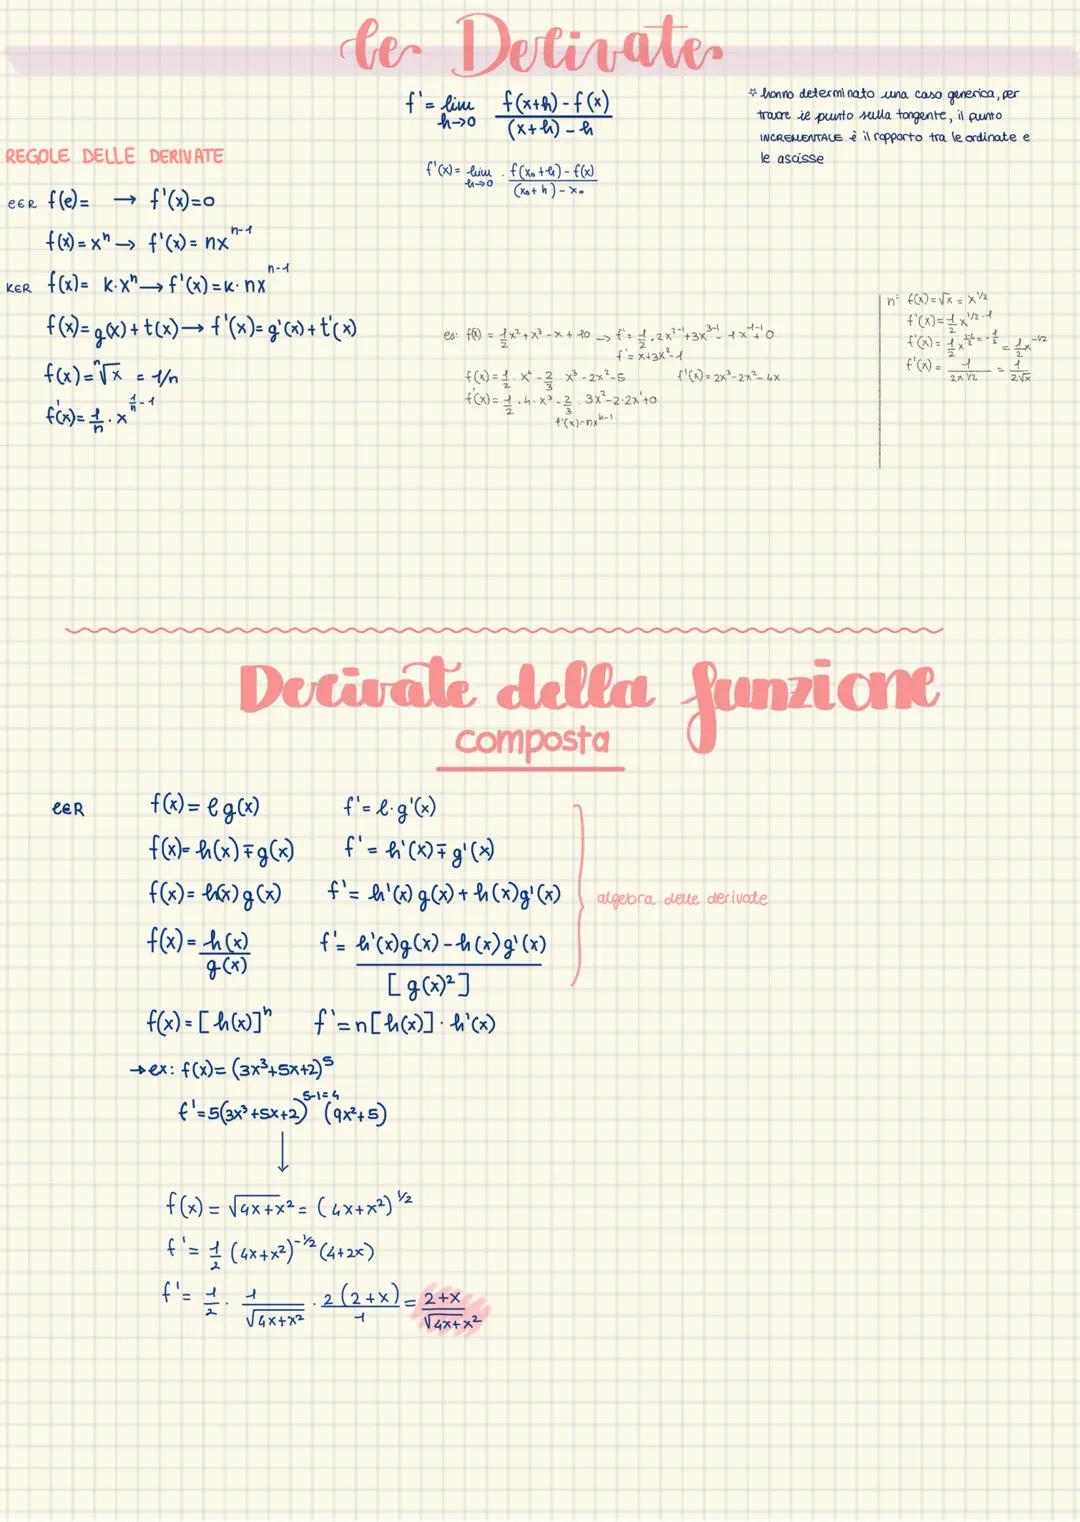 le Derivate
f' = lim h→0 f(x+h) - f(x) / (x+h) - h
* hanno determinato una caso generica, per
trovare il punto sulla tangente, il punto
INCREMENTALE è il rapporto tra le ordinate e
le ascisse
f'(x) = lim h→0 . f(x₀+h) - f(x) / (x₀+h) - x₀
REGOLE DELLE DERIVATE
c∈R f(c) = → f'(x)=0
f(x) = xⁿ → f'(x) = nxⁿ⁻¹
K∈R f(x) = K·xⁿ → f'(x) = K·nxⁿ⁻¹
f(x) = g(x) + t(x) → f'(x) = g'(x) + t'(x)
f(x) = ⁿ√x = 1/n
f'(x) = 1/n · x^(1/n - 1)
es: f(x) = 1/2 x² + x³ - x + 10 → f' = 1/2 · 2x²⁻¹ + 3x³⁻¹ - 1x¹⁻¹ + 0
f' = x+3x²-1
f(x) = 1/2 · x⁴ - 2/3 · x³ - 2x² - 5 f'(x) = 2x³ - 2x² - 4x
f'(x) = 1/2 · 4 · x³ - 2/3 · 3x² - 2·2x¹ + 0
f'(x) = nxⁿ⁻¹
n² f(x) = √x = x^1/2
f'(x) = 1/2 x^1/2-1
f'(x) = 1/2 x^(1-2/2 = -1/2) = 1/2 x^-1/2
f'(x) = 1 / 2x^1/2 = 1 / 2√x
Derivate della funzione
composta
c∈R f(x) = c g(x) f' = c·g'(x)
f(x) = h(x) ∓ g(x) f' = h'(x) ∓ g'(x)
f(x) = h(x) g(x) f' = h'(x) g(x) + h(x) g'(x)
algebra delle derivate
f(x) = h(x) / g(x) f' = h'(x)g(x) - h(x)g'(x) / [g(x)²]
f(x) = [h(x)]ⁿ f' = n[h(x)] · h'(x)
→ ex: f(x) = (3x³+5x+2)⁵
f' = 5(3x³+5x+2)^5-1=4 (9x²+5)
↓
f(x) = √4x+x² = (4x+x²)^1/2
f' = 1/2 (4x+x²)^-1/2 (4+2x)
f' = 1/2 · 1/√4x+x² · 2(2+x)/1 = 2+x/√4x+x²